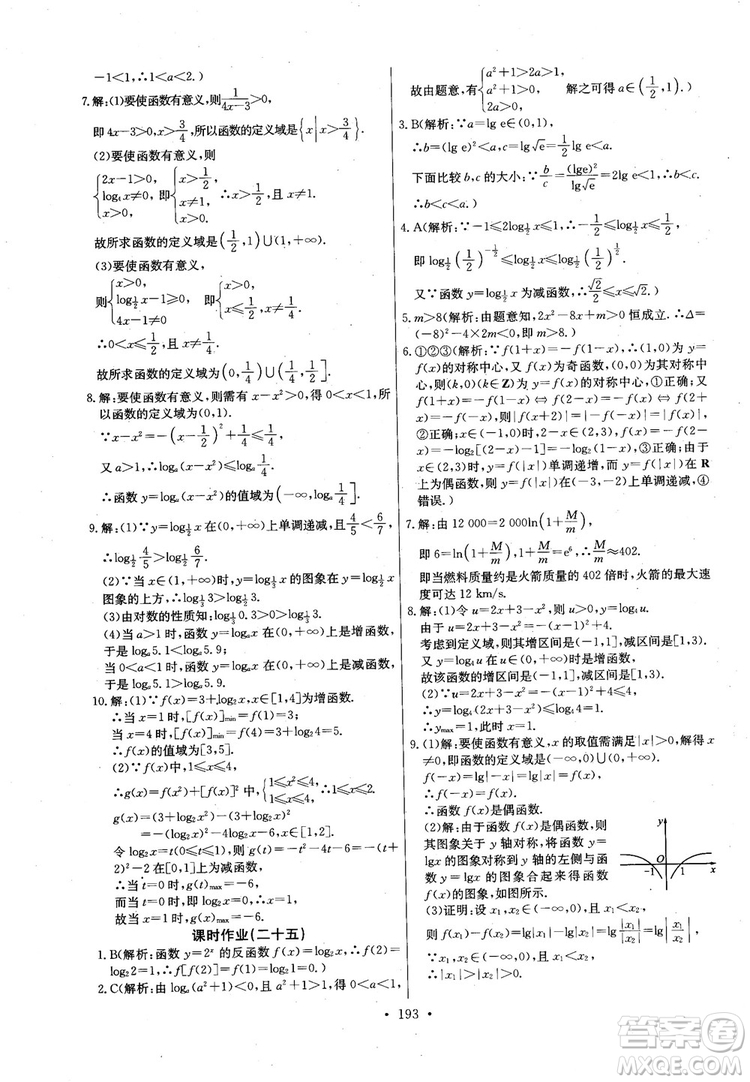 -1<1,∴1<a<2.)
7.解:(1)要使函数有意义,则1/(4x-3)>0,
即4x-3>0,x>3/4,所以函数的定义域是{x|x>3/4}.
(2)要使函数有意义,则
{2x-1>0, log₄x≠0, x>0, 即{x>1/2, x≠1, x>0, ∴x>1/2,且x≠1.
故所求函数的定义域是(1/2,1)∪(1,+∞).
(3)要使函数有意义,
则{x>0, log_{1/2}x-1≥0, 4x-1≠0 即{x>0, x≤1/2, x≠1/4,
∴0<x≤1/2,且x≠1/4.
故所求函数的定义域为(0,1/4)∪(1/4,1/2].
8.解:要使函数有意义,则需有x-x²>0,得0<x<1,所
以函数的定义域为(0,1).
∵x-x²=-(x-1/2)²+1/4≤1/4,
又a>1,∴logₐ(x-x²)≤logₐ1/4.
∴函数y=logₐ(x-x²)的值域为(-∞,logₐ1/4].
9.解:(1)∵y=log_{1/2}x在(0,+∞)上单调递减,且4/5<6/7,
∴log_{1/2}4/5>log_{1/2}6/7.
(2)∵当x∈(1,+∞)时,y=log_{1/2}x的图象在y=log_{1/3}x
图象的上方,∴log_{1/2}3>log_{1/3}3.
(3)由对数的性质知:log_{1/3}0.3>0>log_{1/3}3.
(4)当a>1时,函数y=logₐx在(0,+∞)上是增函数,
于是logₐ5.1<logₐ5.9;
当0<a<1时,函数y=logₐx在(0,+∞)上是减函数,
于是logₐ5.1>logₐ5.9.
10.解:(1)∵f(x)=3+log₂x,x∈[1,4]为增函数.
∴当x=1时,[f(x)]min=f(1)=3;
当x=4时,[f(x)]max=3+log₂4=5.
∴f(x)的值域为[3,5].
(2)∵f(x)=3+log₂x,
∴g(x)=f(x²)+[f(x)]²,{1≤x²≤4, 1≤x≤4 ∴1≤x≤2.
g(x)=(3+log₂x²)-(3+log₂x)²
=-(log₂x)²-4log₂x-6,x∈[1,2].
令log₂x=t(0≤t≤1),则g(t)=-t²-4t-6=-(t+
2)²-2在[0,1]上为减函数,
∴当t=0时,g(t)max=-6.
∴当x=1时,g(x)max=-6.
课时作业(二十五)
1.B(解析:函数y=2ˣ的反函数f(x)=log₂x,f(2)=
log₂2=1,∴f[f(2)]=f(1)=log₂1=0.)
2.C(解析:由logₐ(a²+1)<0得0<a<1.
故由题意,{a²+1>2a>1, a²+1>0, 2a>0, 解之可得a∈(1/2,1).)
3.B(解析:∵a=lg e∈(0,1),
∴b=(lg e)²<a,c=lg√e=1/2lg e<a.
下面比较b,c的大小:∵b/c=(lge)²/lg√e=2lg e<1,
∴b<c<a.)
4.A(解析:∵-1≤2log_{1/2}x≤1,∴-1/2≤log_{1/2}x≤1/2,
即log_{1/2}(1/2)^{-1/2}≤log_{1/2}x≤log_{1/2}(1/2)^{1/2}.
又∵函数y=log_{1/2}x为减函数,∴√2/2≤x≤√2.)
5.m>8(解析:由题意知,2x²-8x+m>0恒成立.∴Δ=
(-8)²-4×2m<0,即m>8.)
6.①②③(解析:∵f(1+x)=-f(1-x),∴(1,0)为y=
f(x)的对称中心,又f(x)为奇函数,f(x)的其对称中
心(k,0)(k∈Z)为y=f(x)的对称中心,①正确;又
f(1+x)=-f(1-x)⇔f(2+x)=-f(-x)⇔f(2+
x)=f(x),∴f(|x|)=-f(-|x|)=-f(2-|x|)
=-log₂[(2-x)-1]=-log₂(1-x).③正确;由于
x∈(0,+∞)时f(x)单调递增,而y=f(|x|)在R
上为偶函数,故y=f(|x|)在(-∞,0)单调递减,④
错误.)
7.解:由12 000=2 000ln(1+M/m),
即6=ln(1+M/m),1+M/m=e⁶,∴M/m≈402.
即当燃料质量约是火箭质量的402倍时,火箭的最大速
度可达12 km/s.
8.解:(1)令u=2x+3-x²,则u=2x+3-x²>0.
由于u=2x+3-x²=-(x-1)²+4,
考虑到定义域,则其增区间是(-1,1],减区间是[1,3).
又u∈(0,+∞)时,y=log₄u是增函数,
故该函数的增区间是(-1,1],减区间是[1,3).
(2)∵u=2x+3-x²=-(x-1)²+4≤4,
∴y=log₄(2x+3-x²)≤log₄4=1.
∴ymax=1,此时x=1.
9.(1)解:要使函数有意义,x的取值需满足|x|>0,x≠0,
即函数的定义域是(-∞,0)∪(0,+∞).
f(-x)=lg|-x|=lg|x|=f(x),
∴f(-x)=f(x).
∴函数f(x)是偶函数.
(2)解:由于函数f(x)是偶函数,
其图象关于y轴对称,将函数y=
lgx的图象对称到y轴的左侧与函
数y=lgx的图象合起来得函数
f(x)的图象,如图所示.
y
-1 O 1 x
(3)证明:设x₁,x₂∈(-∞,0),且x₁<x₂,
则f(x₁)-f(x₂)=lg|x₁|-lg|x₂|=lg|x₁|/|x₂|=lg|x₁/x₂|.
∵x₁,x₂∈(-∞,0),且x₁<x₂,
∴|x₁|>|x₂|>0.
• 193 •
答案圈
MXQE.COM